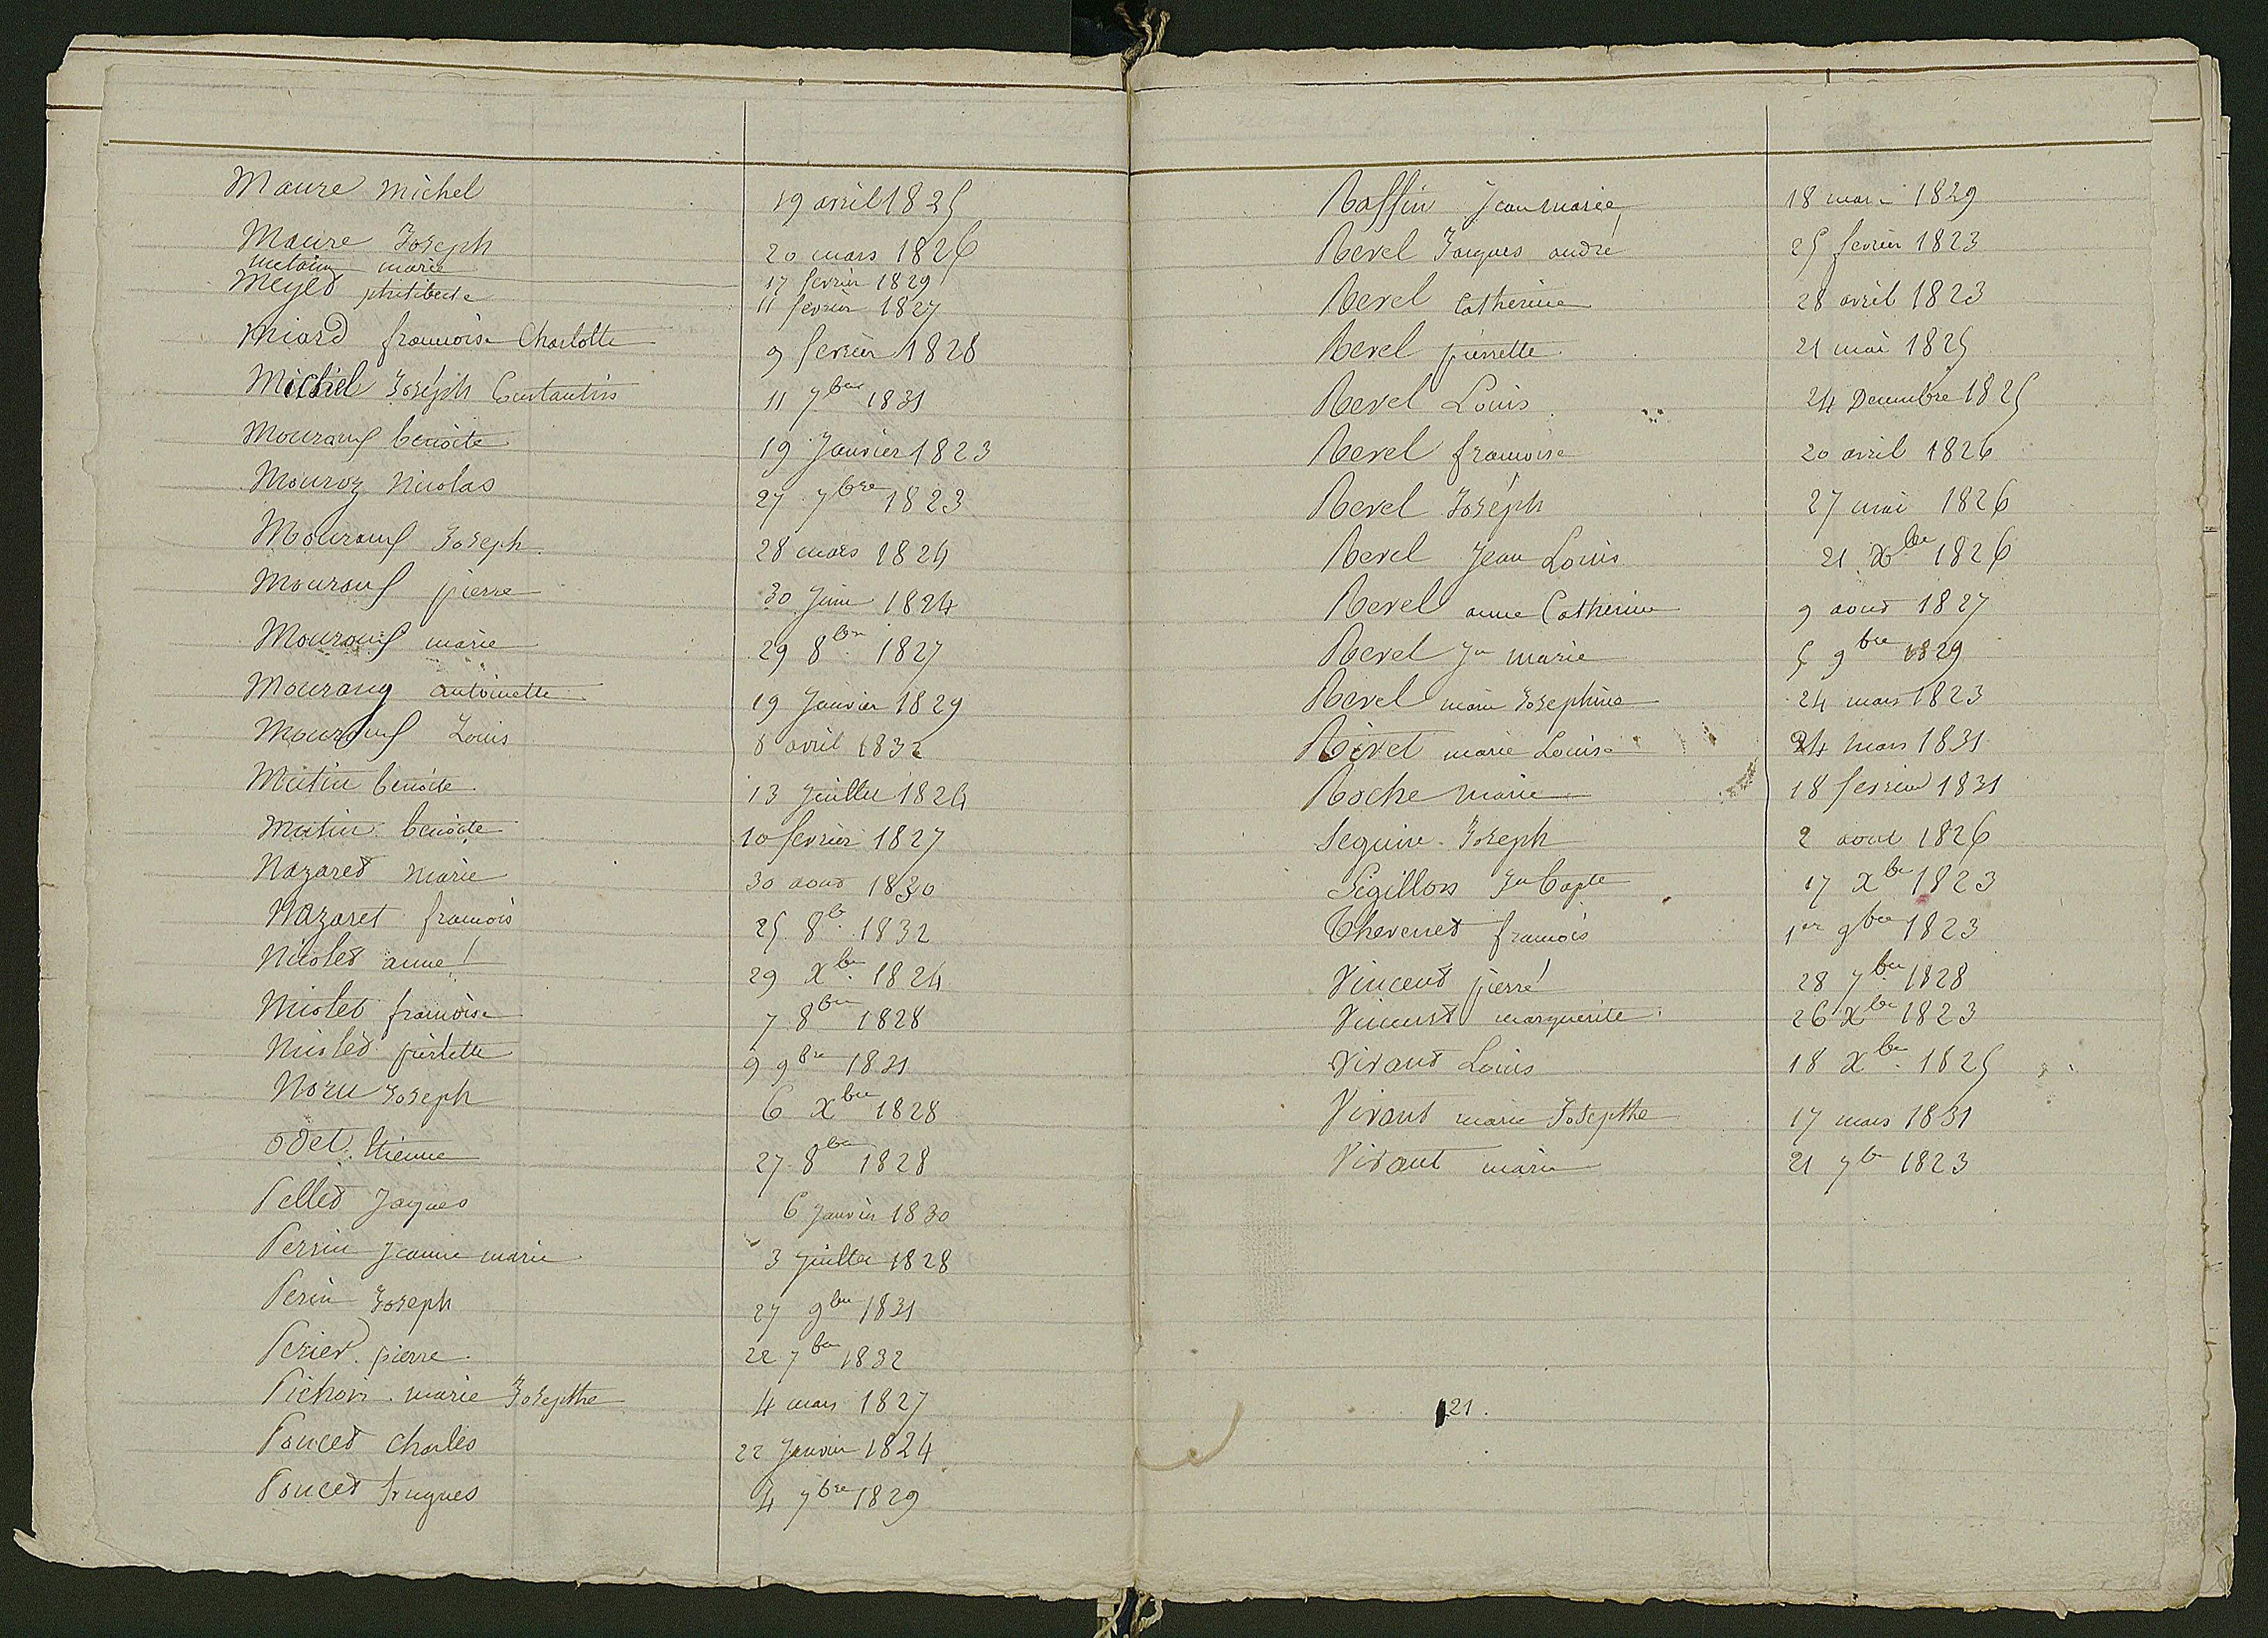 Maure Michel 19 avril 1825
Maure Joseph 20 mars 1826
marie 17 fevrier 1829
Meyed philiberte 11 fevrier 1827
Miard francoise Charlotte 9 fevrier 1828
Michel Joseph Constantin 11 7bre 1831
benoite 19 Janvier 1823
Mouroz Nicolas 27 7bre 1823
Joseph 28 mars 1824
pierre 30 Juin 1824
marie 29 8bre 1827
antoinette 19 Janvier 1829
Louis 8 avril 1832
Mutin benoite 13 Juillet 1824
Mutin benoite 10 fevrier 1827
Nazared Marie 30 aoud 1830
Nazaret francois 25 8b. 1832
Nicoled anne 29 Xbre 1824
Nicoled francoise 7 8bre 1828
Nicoled pierrette 9 9bre 1831
Joseph 6 Xbre 1828
Odet Etienne 27 8bre 1828
Pelled Jaques 6 Janvier 1830
Perrin Jeanne marie 3 Juillet 1828
Perin Joseph 27 9bre 1831
pierre 22 7bre 1832
Pichon marie Josepthe 4 mars 1827
Ponced Charles 22 Janvier 1824
Ponced hugues 4 7bre 1829
Raffin Jean marie 18 mars 1829
Revel Jaques andré 25 fevrier 1823
Revel Catherine 28 avril 1823
Revel pierrette 21 mai 1825
Revel Louis 24 Decembre 1825
Revel francoise 20 avril 1826
Revel Joseph 27 mai 1826
Revel Jean Louis 21 Xbre 1826
Revel anne Catherine 9 aoud 1827
Revel Jn marie 5 9bre 1829
Revel marie Josephine 24 mars 1823
Rivet marie Louise 24 mars 1831
Roche Marie 18 fevrier 1831
Seguin Joseph 2 aout 1826
Sigillon Jn bapte 17 Xbre 1823
Thevened francois 1er 9bre 1823
Vincend pierre 28 7bre 1828
Vincent marguerite 26 Xbre 1823
Vivand Louis 18 Xbre 1825
Vivant marie Josepthe 17 mars 1831
Vivant marie 21 7b 1823
121.